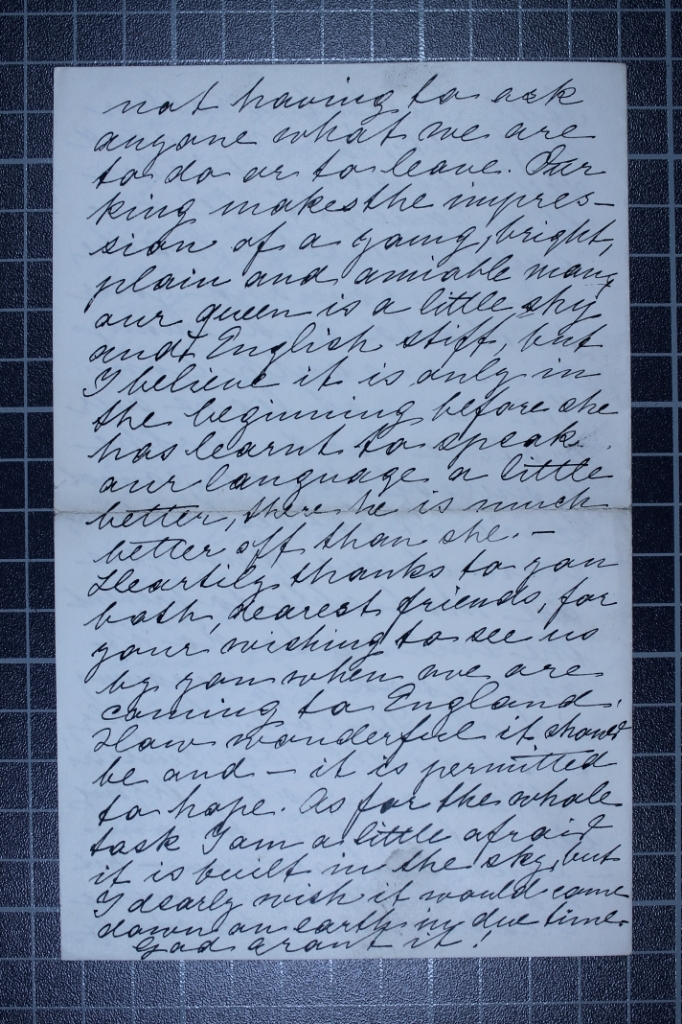 not having to ask
anyone what we are
to do or to leave. Our
king makes the impres-
sion of a young, bright,
plain and amiable man,
our queen is a little shy
and English stiff, but
I believe it is only in
the beginning before she
has learnt to speak
our language a little
better, there he is much
better off than she. -
Heartily thanks to you
both, dearest friends, for
your wishing to see us
by you when we are
coming to England.
How wonderful it should
be and - it is permitted
to hope. As for the whole
task I am a little afraid
it is built in the sky, but
I dearly wish it would come
down on earth in due time.
God grant it!